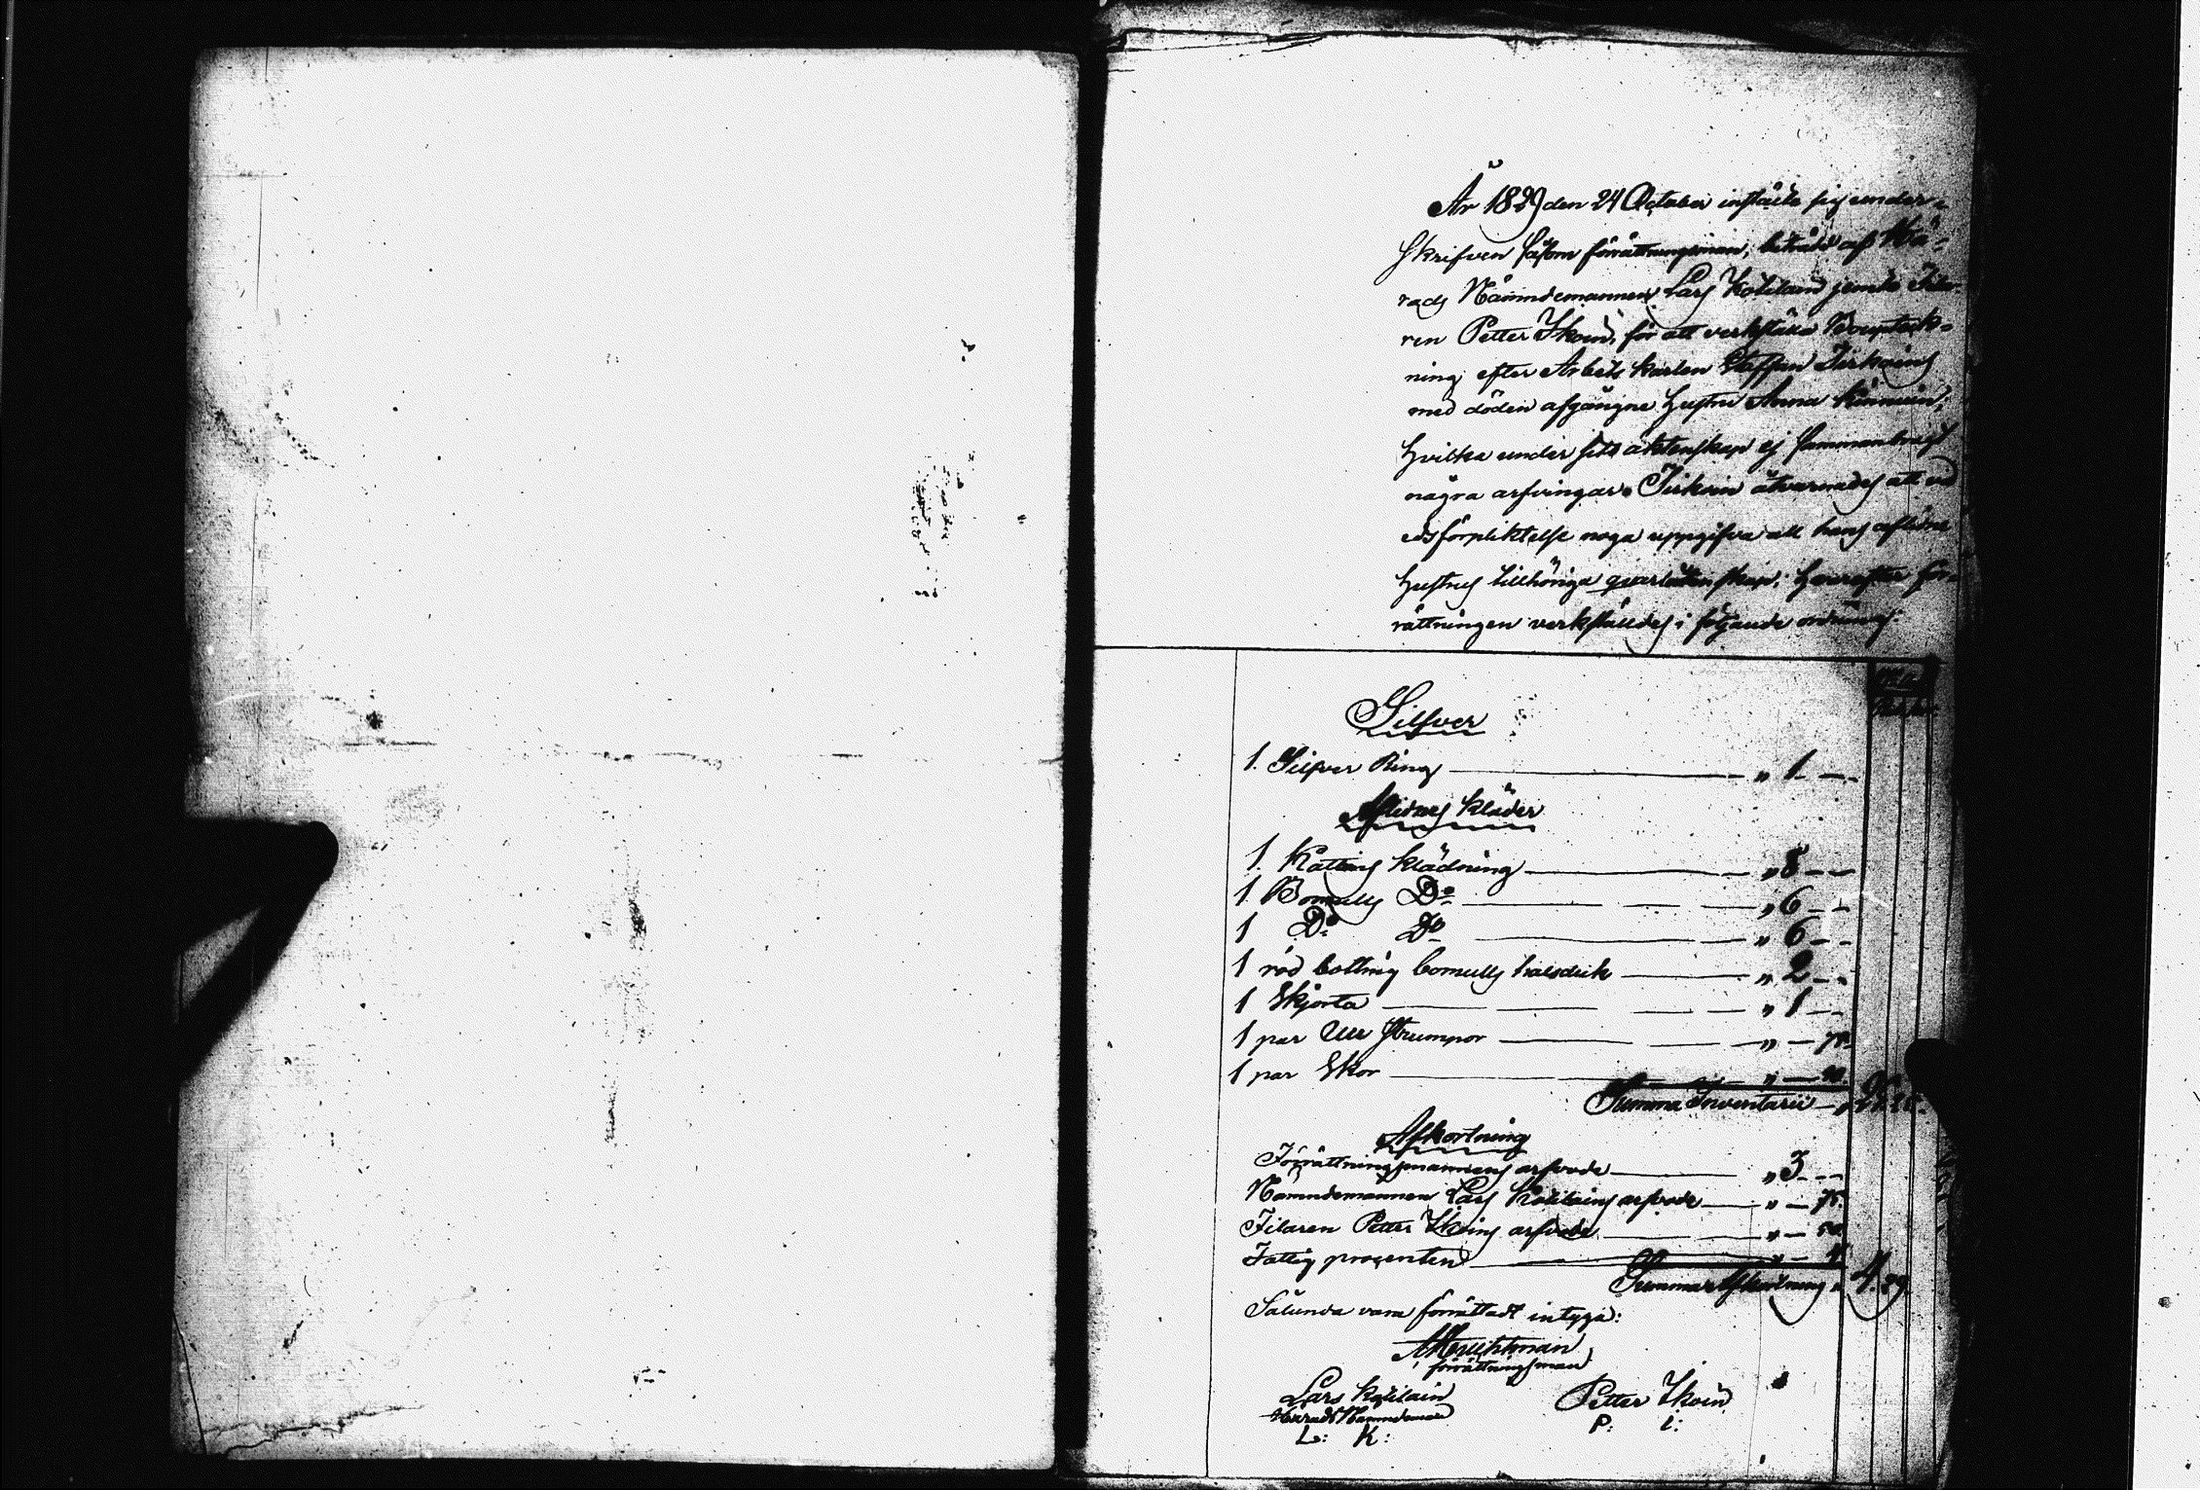 År 1829 den 24 October instälte sig under-
skrifven såsom förrättningsman, biträdd af Hä-
rads Nämndemannen Lars Kolilain jemte
ren Petter Ikoin, för att verkställa Boupteck-
ning efter Arbets karlen Staffan Tirkoins
med döden afgångne Hustru Anna
hvilka under sitt äktenskap ej sammanbragt
några arfvingar. Tirkoin åtvarnades att vid
edsförpliktelse noga uppgifva all hans aflidne
Hustrus tillhöriga qvarlåtenskap; hvarefter för-
rättningen verkställdes i följande ordning:
Silfver
1. Silfver Ring " 1 — —
Aflidnes kläder
1. Kattuns klädning " 8 — —
1. Bomulls D:o " 6 — —
1 D:o D:o " 6 — —
1 röd bomulls halsduk " 2 — —
1 Skjorta " 1 — —
1 par Ull strumpor " — 75.
1 par Skor " —
Summa Inventarii
Afkortning
Förrättningsmannens arfvode " 3 — —
Nämndemannen Lars Kolilains arfvode " — 75.
Filaren Petter Ikoins arfvode " — 50.
Fattig procenten " —
Summa Afkortning " 4.29
Sålunda vara förrättadt intyga:
förrättningsman
Lars Kolilain Petter Ikoin
Härads Nämndeman P: I:
L: K: